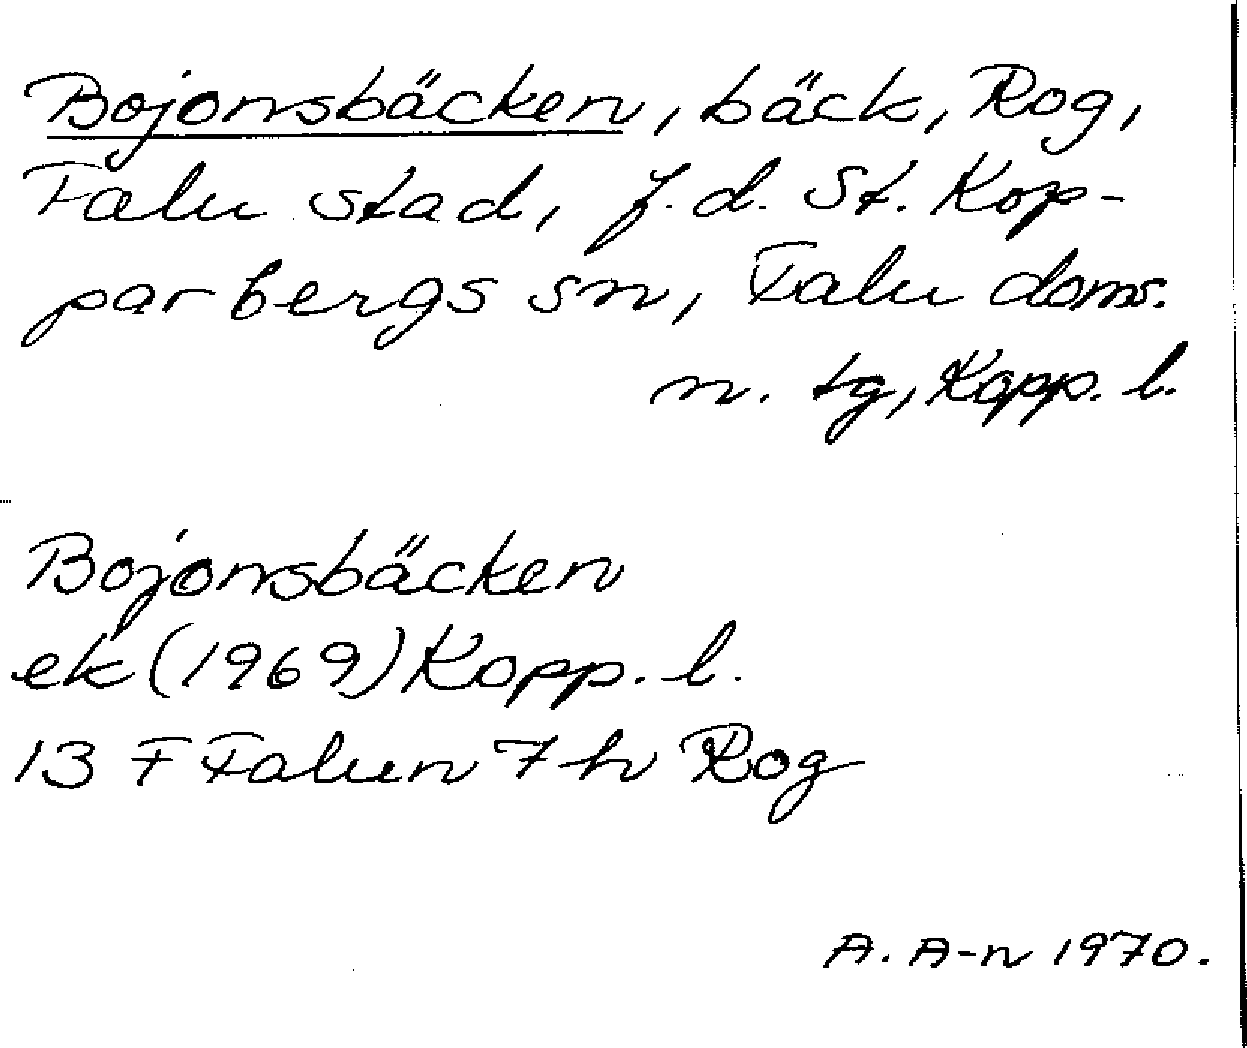 Bojonsbäcken, bäck, Rog,
Falu stad, f.d. St. Kop-
parbergs sn, Falu doms.
n. tg, Kopp. l.
Bojonsbäcken
ek (1969) Kopp. l.
13 F Falun 7 h Rog
A. A-n 1970.